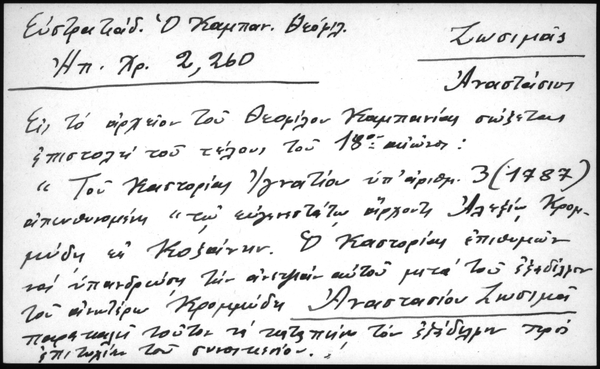 Εὐστρατιάδ. Ὁ Καμπαν. Θεόφιλ.
Ἠπ. Χρ. 2, 260
Ζωσιμᾶς
Ἀναστάσιος
Εἰς τὸ ἀρχεῖον τοῦ Θεοφίλου Καμπανίας σώζεται
ἐπιστολὴ τοῦ τέλους τοῦ 18ου αἰῶνος:
"Τοῦ Καστορίας Ἰγνατίου ὑπ' ἀριθμ. 3 (1787)
ἀπευθυνομένη "τῷ εὐγενεστάτῳ ἄρχοντι Ἀλεξίῳ Κρομ-
μύδῃ εἰς Κοζάνην. Ὁ Καστορίας ἐπιθυμῶν
νὰ ὑπανδρώσῃ τὴν ἀνεψιὰν αὐτοῦ μετὰ τοῦ ἐξαδέλφου
τοῦ ἀνωτέρω Κρομμύδη Ἀναστασίου Ζωσιμᾶ
παρακαλεῖ τοῦτον νὰ καταπείσῃ τὸν ἐξάδελφον πρὸς
ἐπιτυχίαν τοῦ συνοικεσίου.